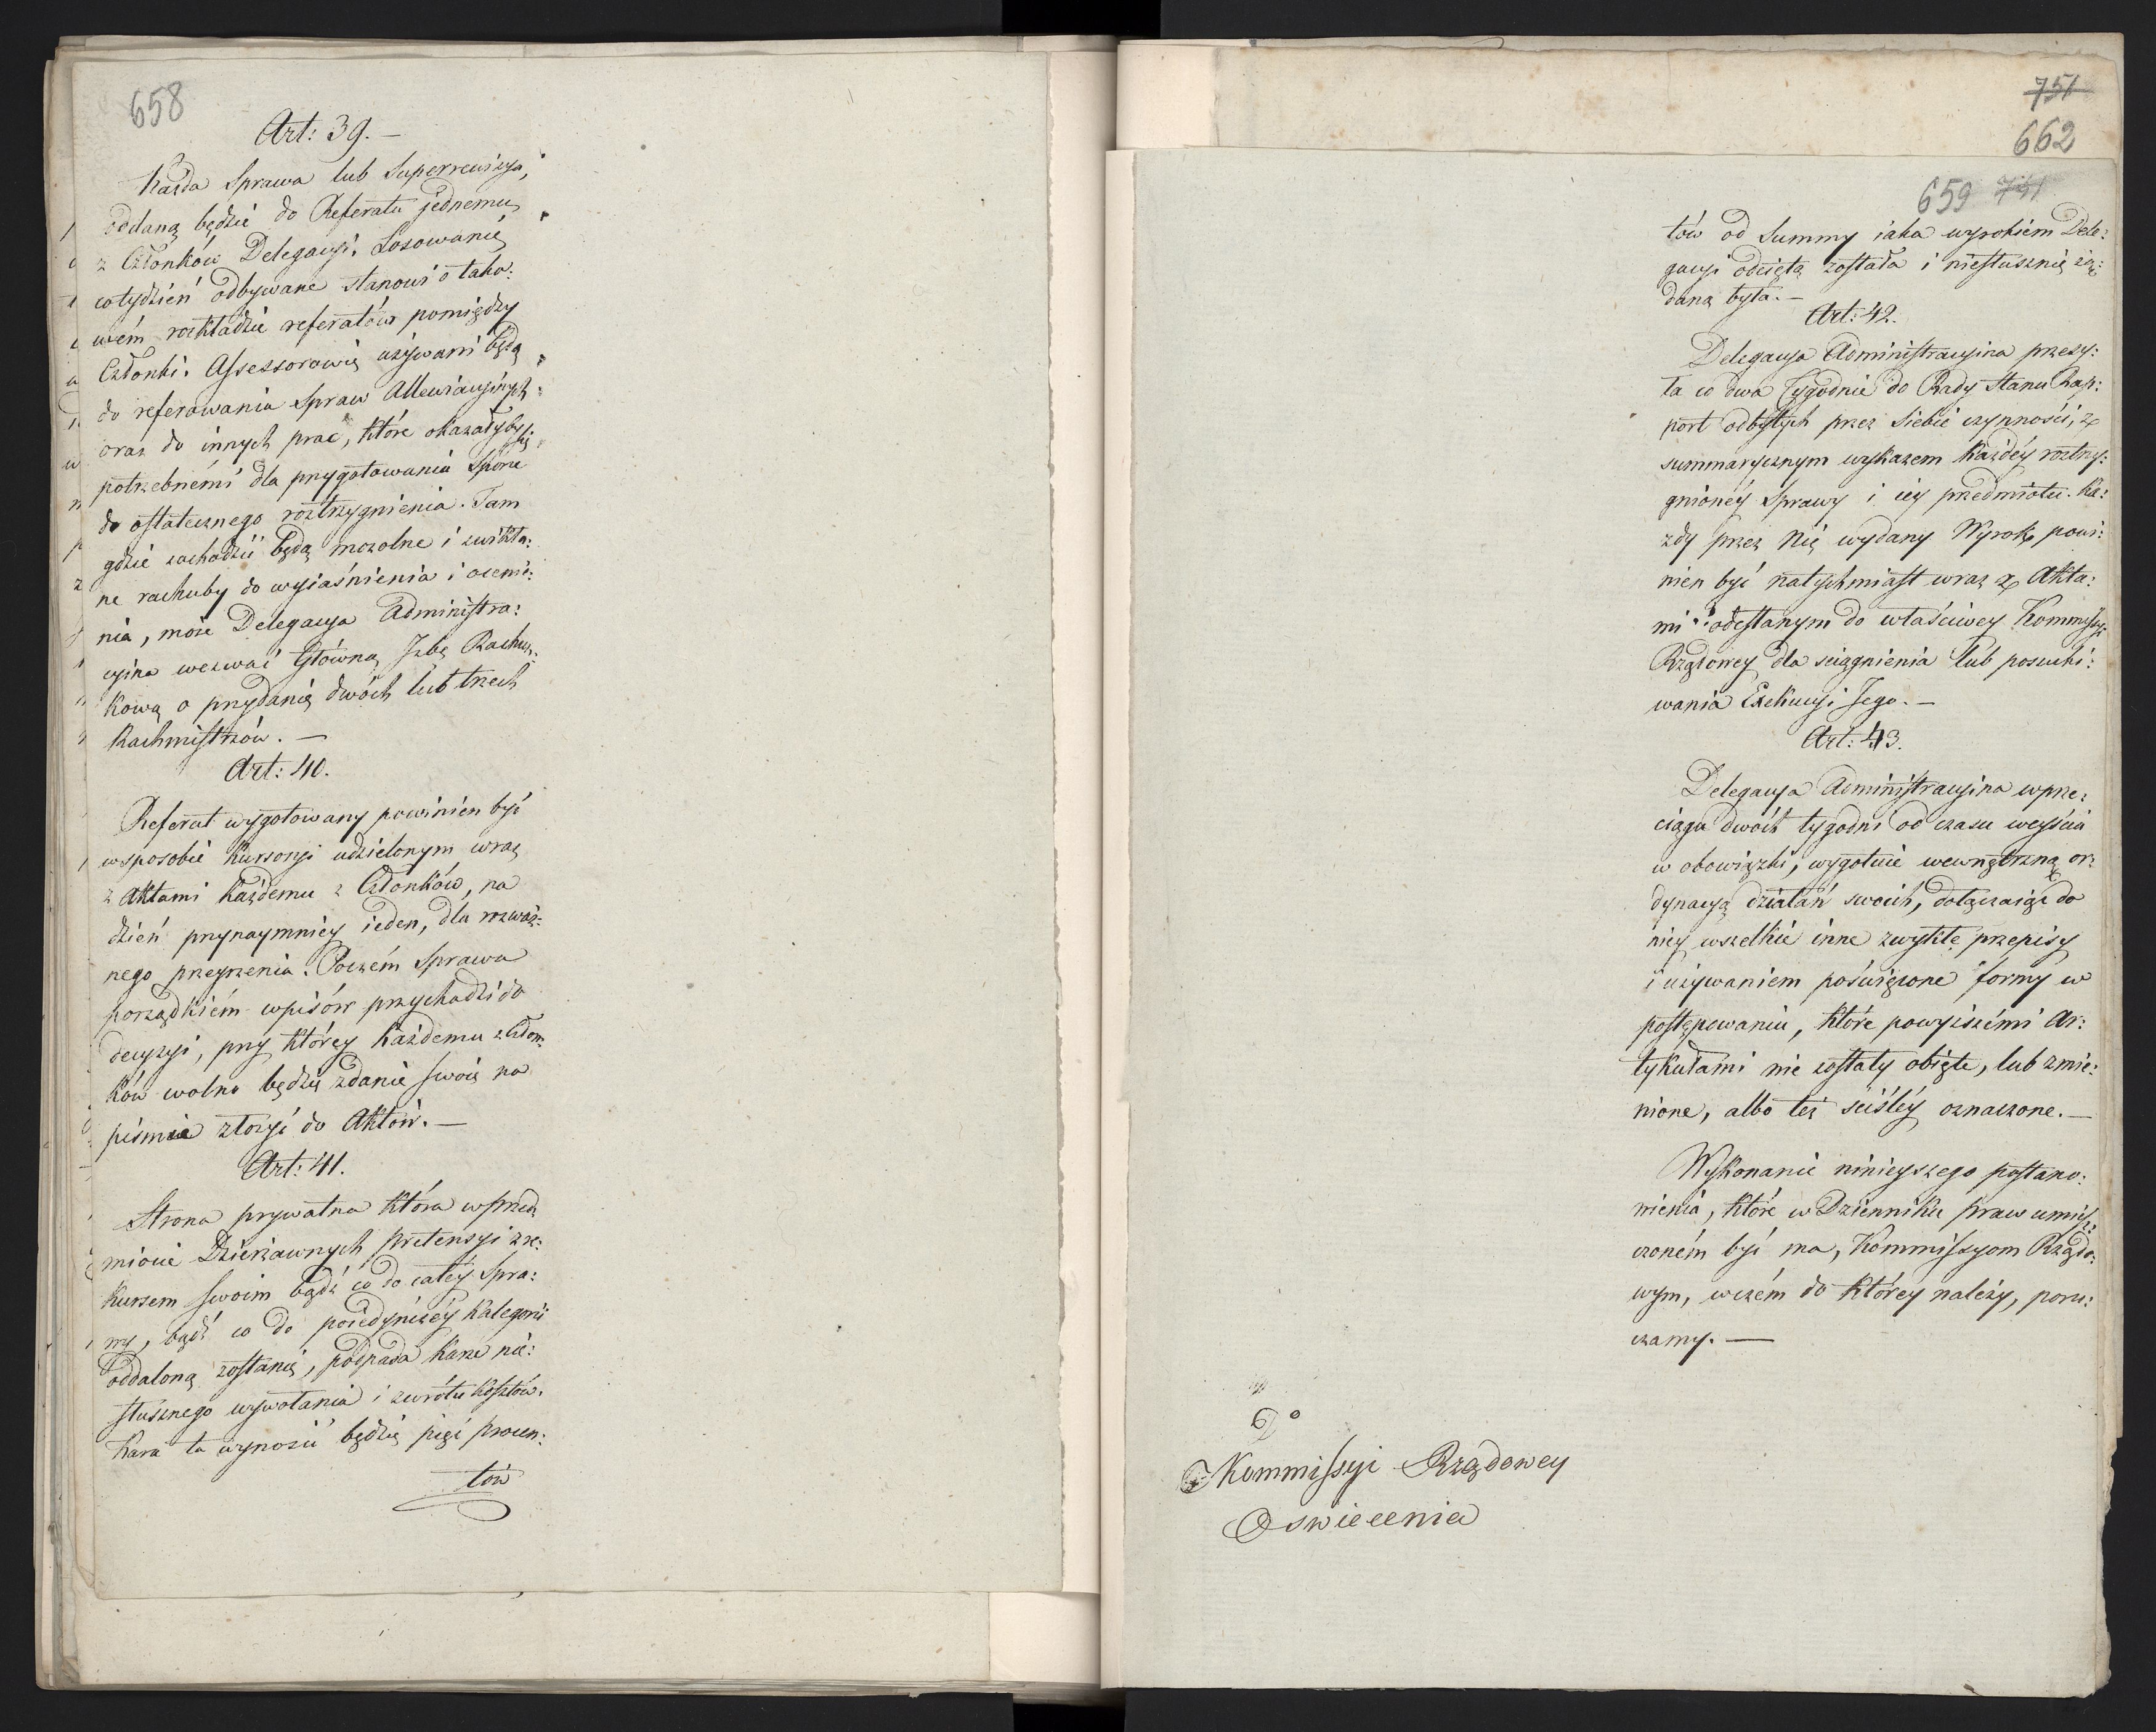 658
Art: 39. —
Każda Sprawa lub Superrewizya,
oddaną będzie do Referatu jednemu
z Członków Delegacyi. Losowanie
cotydzień odbywane stanowi o tako:
wém rozkładzie referatów pomiędzy
Członki. Assessorowie używani będą
do referowania Spraw Allewiacyinych
oraz do innych prac, które okazałyby się
potrzebnémi dla przygotowania Sporu
do ostatecznego roztrzygnienia. Tam
gdzie zachodzić będą mozolne i zwikła:
ne rachuby do wyiaśnienia i oceni:
nia, może Delegacya Administra:
cyina wezwać Główną Izbę Rachun:
kową o przydanie dwóch lub trzech
Rachmistrzów. —
Art: 40.
Referat wygotowany powinien być
w sposobie Kursoryi udzielonym wraz
z Aktami Każdemu z Członków, na
dzień przynaymniey ieden, dla rozważ:
nego przeyrzenia. Poczém Sprawa
porządkiém wpisów przychodzi do
decyzyi, przy którey Każdemu z Człon:
ków wolno będzie zdanie swoie na
piśmie złożyć do Aktów. —
Art: 41.
Strona prywatna która w przed:
miocie Dzierżawnych pretensyi z re:
kursem swoim bądź co do całéy Spra:
wy, bądź co do poiedyńczéy Kategorii
oddaloną zostanie, podpada karze nie:
słusznego wywołania i zwrotu Kosztów.
Kara ta wynosić będzie pięć procen:
tów
751
662
659 751
tów od Summy iaka wyrokiem Dele:
gacyi odciętą została i niesłusznie żą:
daną była. —
Art: 42.
Delegacya Administracyina przesy:
ła co dwa Tygodnie do Rady Stanu Rap:
port odbytych przez siebie czynności, z
summarycznym wykazem każdéy roztrzy:
gnionéy Sprawy i iéy przedmiotu. Ka:
żdy przez Nię wydany Wyrok, powi:
nien być natychmiast wraz z Akta:
mi odesłanym do właściwey Kommissyi
Rządowey dla sciągnienia lub poszuki:
wania Exekucyi Jego. —
Art: 43.
Delegacya Administracyina w prze:
ciągu dwóch tygodni od czasu weyścia
w obowiązki, wygotuie wewnętrzną or:
dynacyą działań swoich, dołączaiąc do
niéy wszelkie inne zwykłe przepisy
i używaniem poświęcone formy w
postępowaniu, które powyższémi Ar:
tykułami nie zostały obięte, lub zmie:
nione, albo téż ściśléy oznaczone. —
Wykonanie ninieyszego postano:
wienia, które w Dzienniku praw umiesz:
czoném być ma, Kommissyom Rządo:
wym, w czém do którey należy, poru:
czamy. —
Do
Kommissyi Rządowey
Oswiecenia